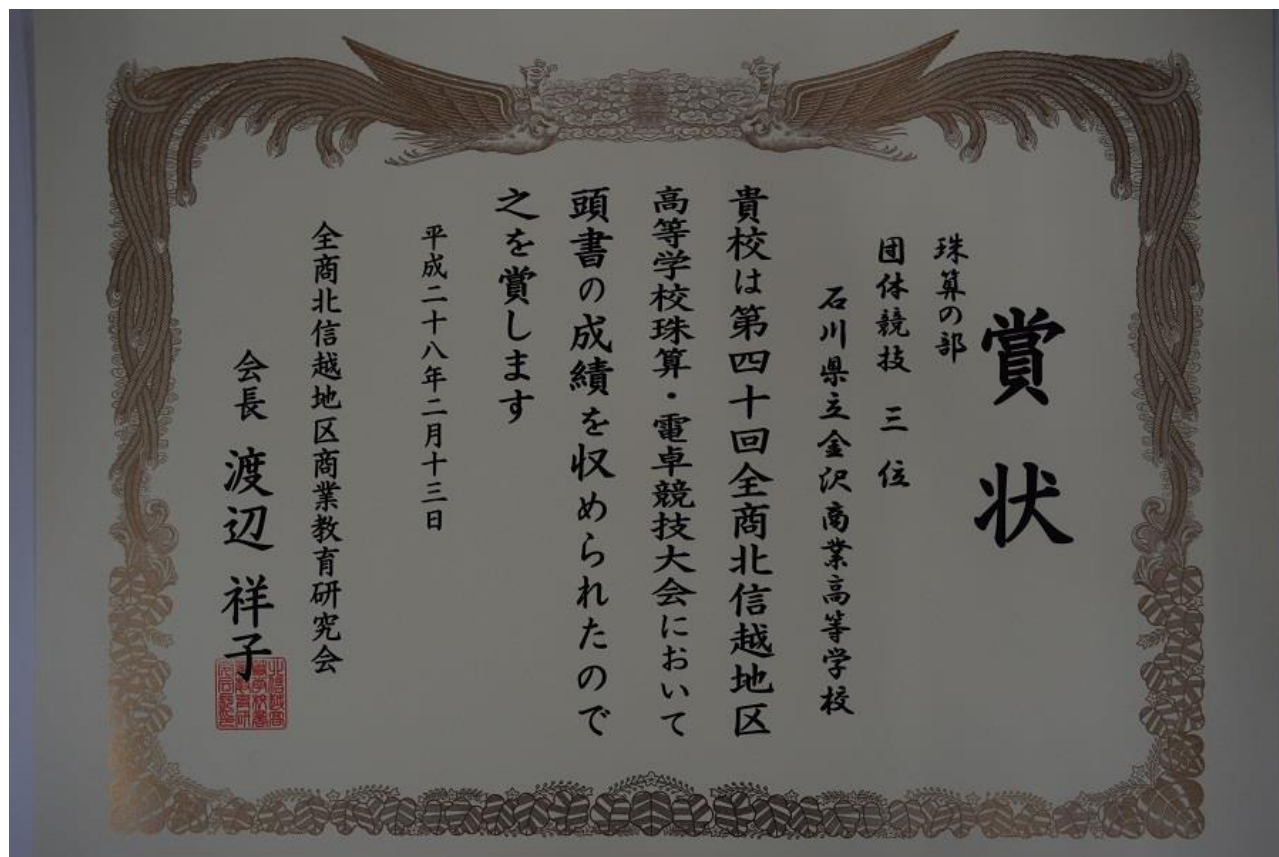 賞状
珠算の部
団体競技 三位
石川県立金沢商業高等学校
貴校は第四十回全商北信越地区
高等学校珠算・電卓競技大会において
頭書の成績を収められたので
之を賞します
平成二十八年二月十三日
全商北信越地区商業教育研究会
会長 渡辺 祥子